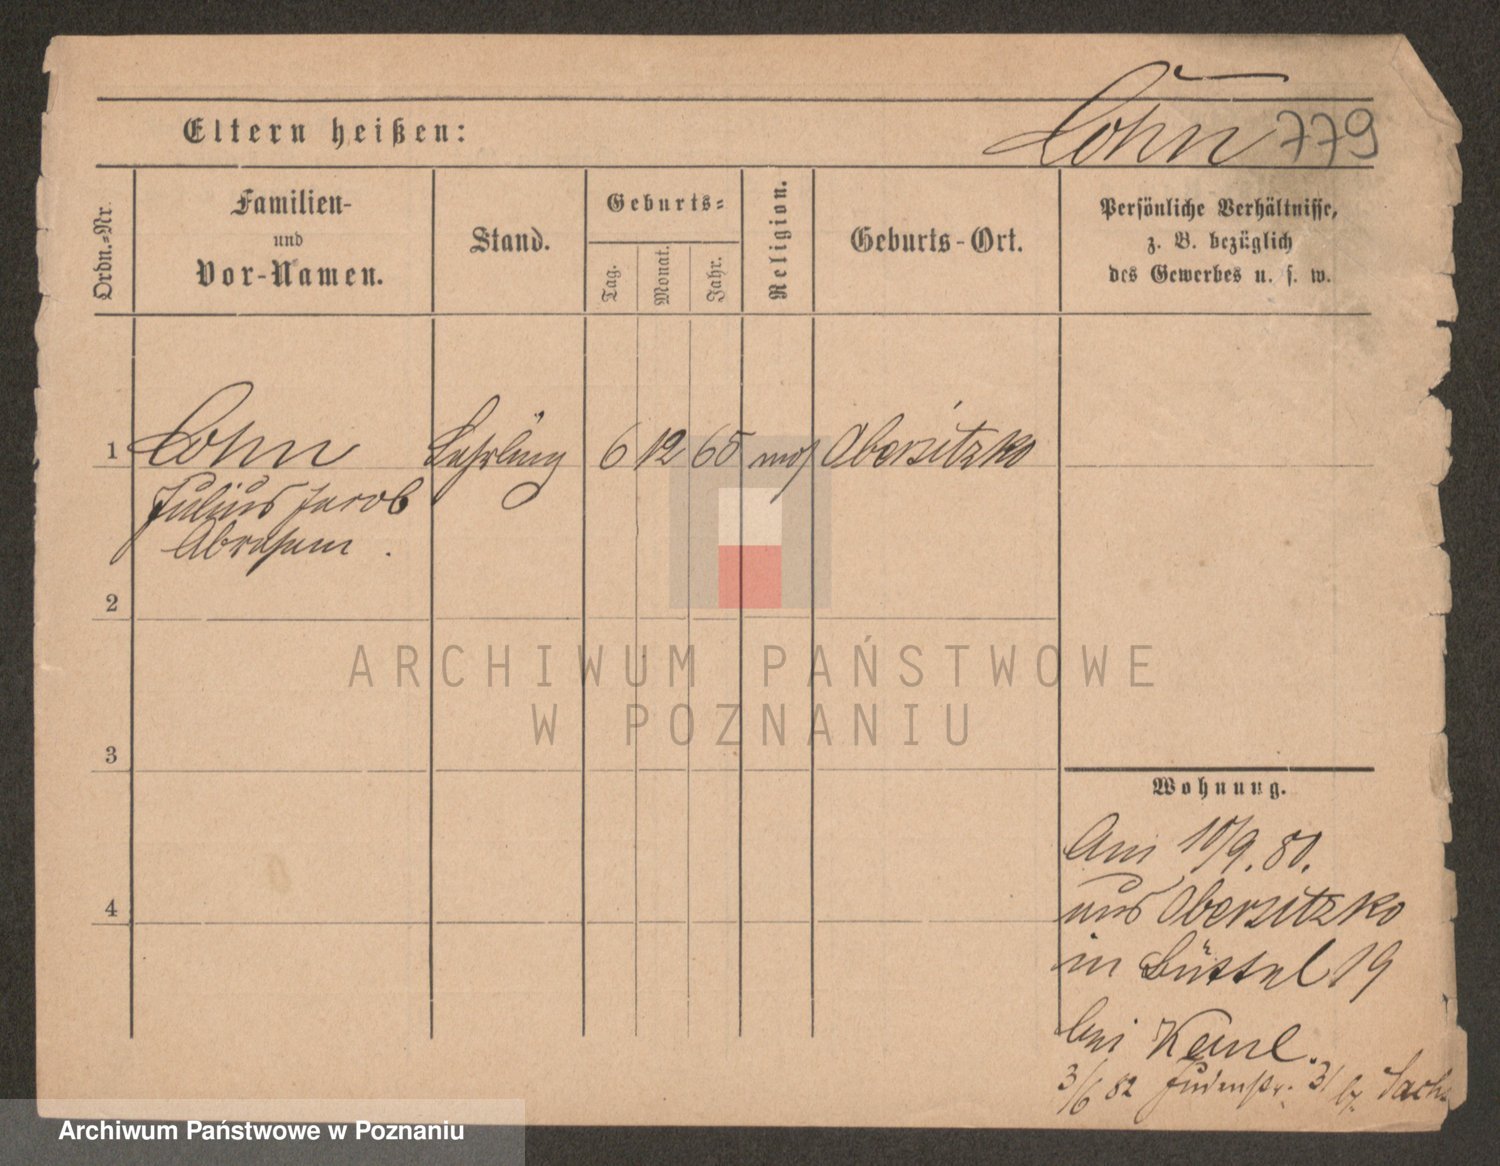 Cohn 779
Eltern heißen:
Ordn.=Nr.
Familien-
und
Vor-Namen.
Stand.
Geburts=
Tag.
Monat.
Jahr.
Religion.
Geburts-Ort.
Persönliche Verhältnisse,
z. B. bezüglich
des Gewerbes u. s. w.
1 Cohn Lehrling 6 12 65 mos Obersitzko
Julius Jacob
Abraham.
2
3
4
Wohnung.
Am 10/9. 80.
aus Obersitzko
in Büttel 19
bei
3/6 82 Judenstr. 31 Sachs
ARCHIWUM PAŃSTWOWE
W POZNANIU
Archiwum Państwowe w Poznaniu